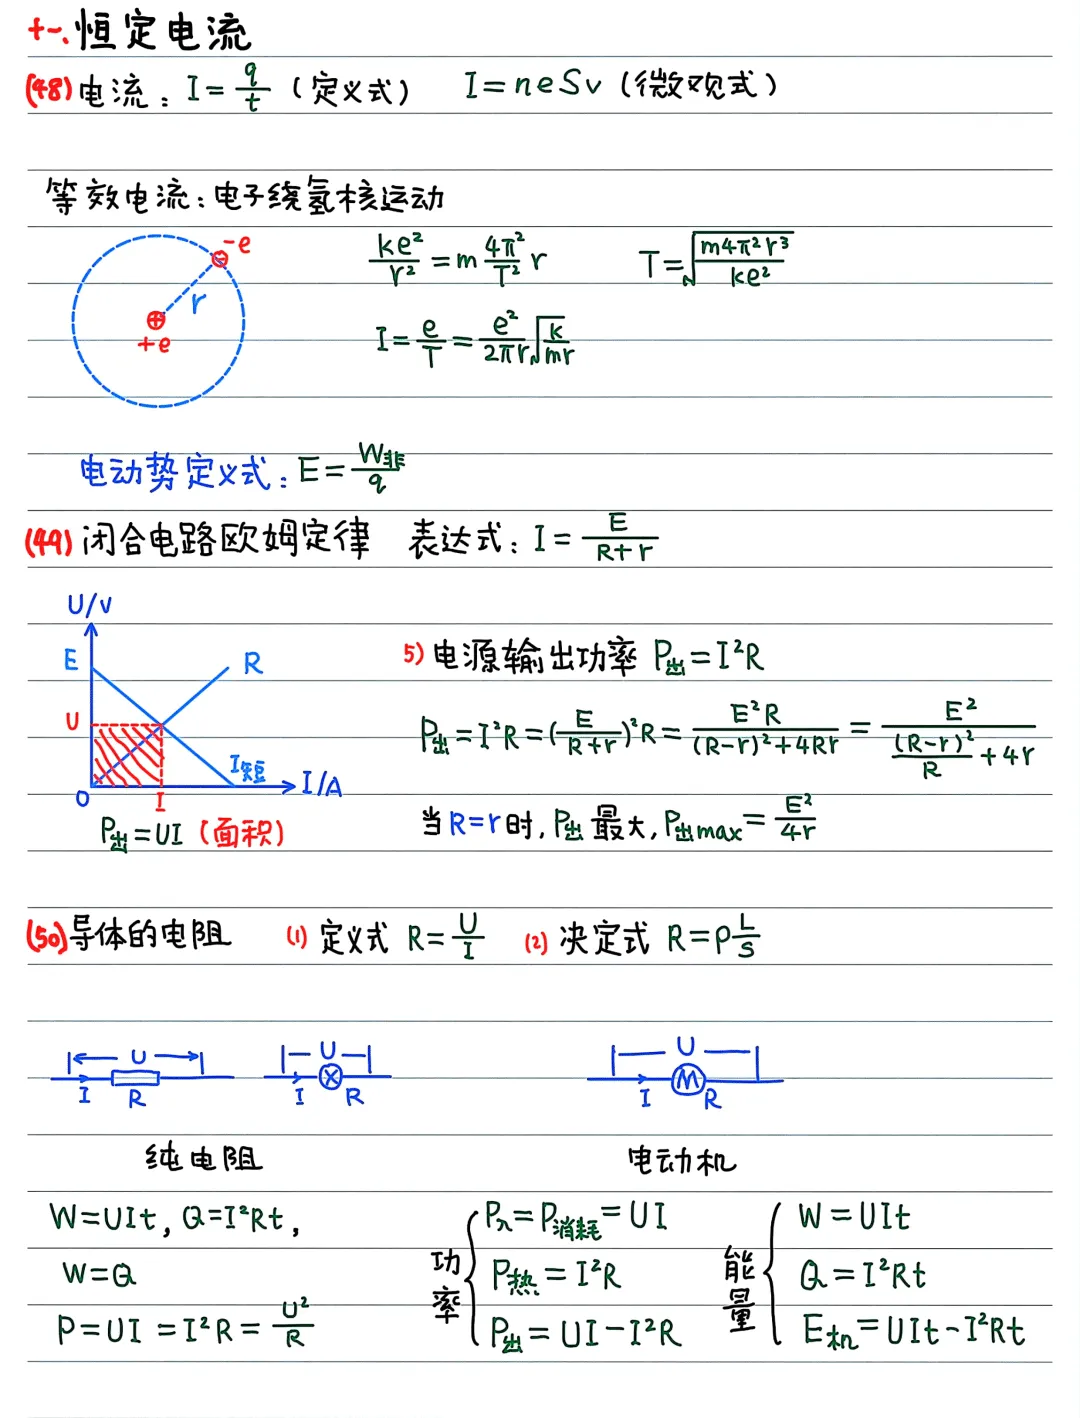 十一.恒定电流
(48) 电流: I=q/t (定义式) I=neSv (微观式)
等效电流:电子绕氢核运动
-e
r
+e
ke²/r²=m4π²/T² r T=√(m4π²r³/ke²)
I=e/T=e²/2πr√(k/mr)
电动势定义式: E=W非/q
(49) 闭合电路欧姆定律 表达式: I=E/(R+r)
U/V
E
R
U
I短
O
I
I/A
P出=UI (面积)
5) 电源输出功率 P出=I²R
P出=I²R=(E/(R+r))²R=E²R/((R-r)²+4Rr)=E²/((R-r)²/R+4r)
当R=r时,P出最大,P出max=E²/4r
(50)导体的电阻 (1) 定义式 R=U/I (2) 决定式 R=ρL/S
U U U
I R I R I R
纯电阻 电动机
W=UIt, Q=I²Rt,
W=Q
P=UI=I²R=U²/R
功率
P入=P消耗=UI
P热=I²R
P出=UI-I²R
能量
W=UIt
Q=I²Rt
E机=UIt-I²Rt